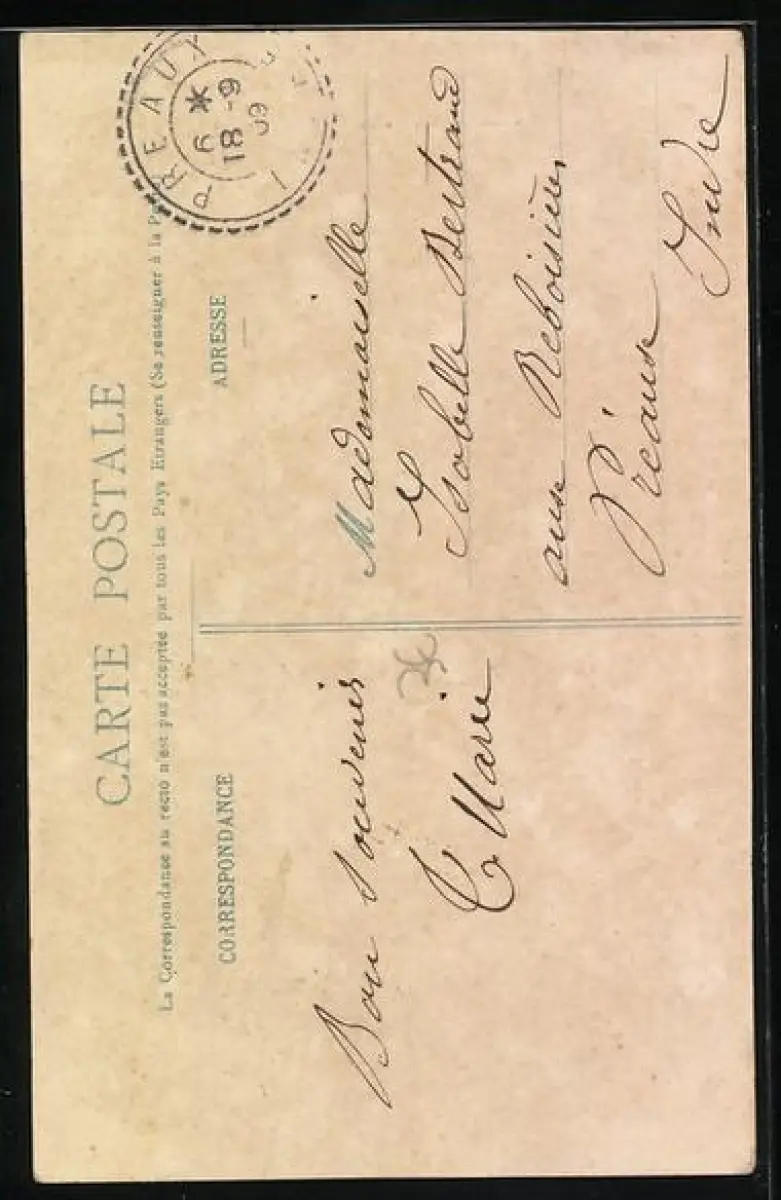 CARTE POSTALE
La Correspondance au recto n'est pas acceptée par tous les Pays Etrangers (Se renseigner à la P
CORRESPONDANCE
ADRESSE
Bon Souvenir
Marie
Mademoiselle
Isobelle Bertrand
aux Reboisières
Préaux
Indre
PREAUX
*
18 -9
09